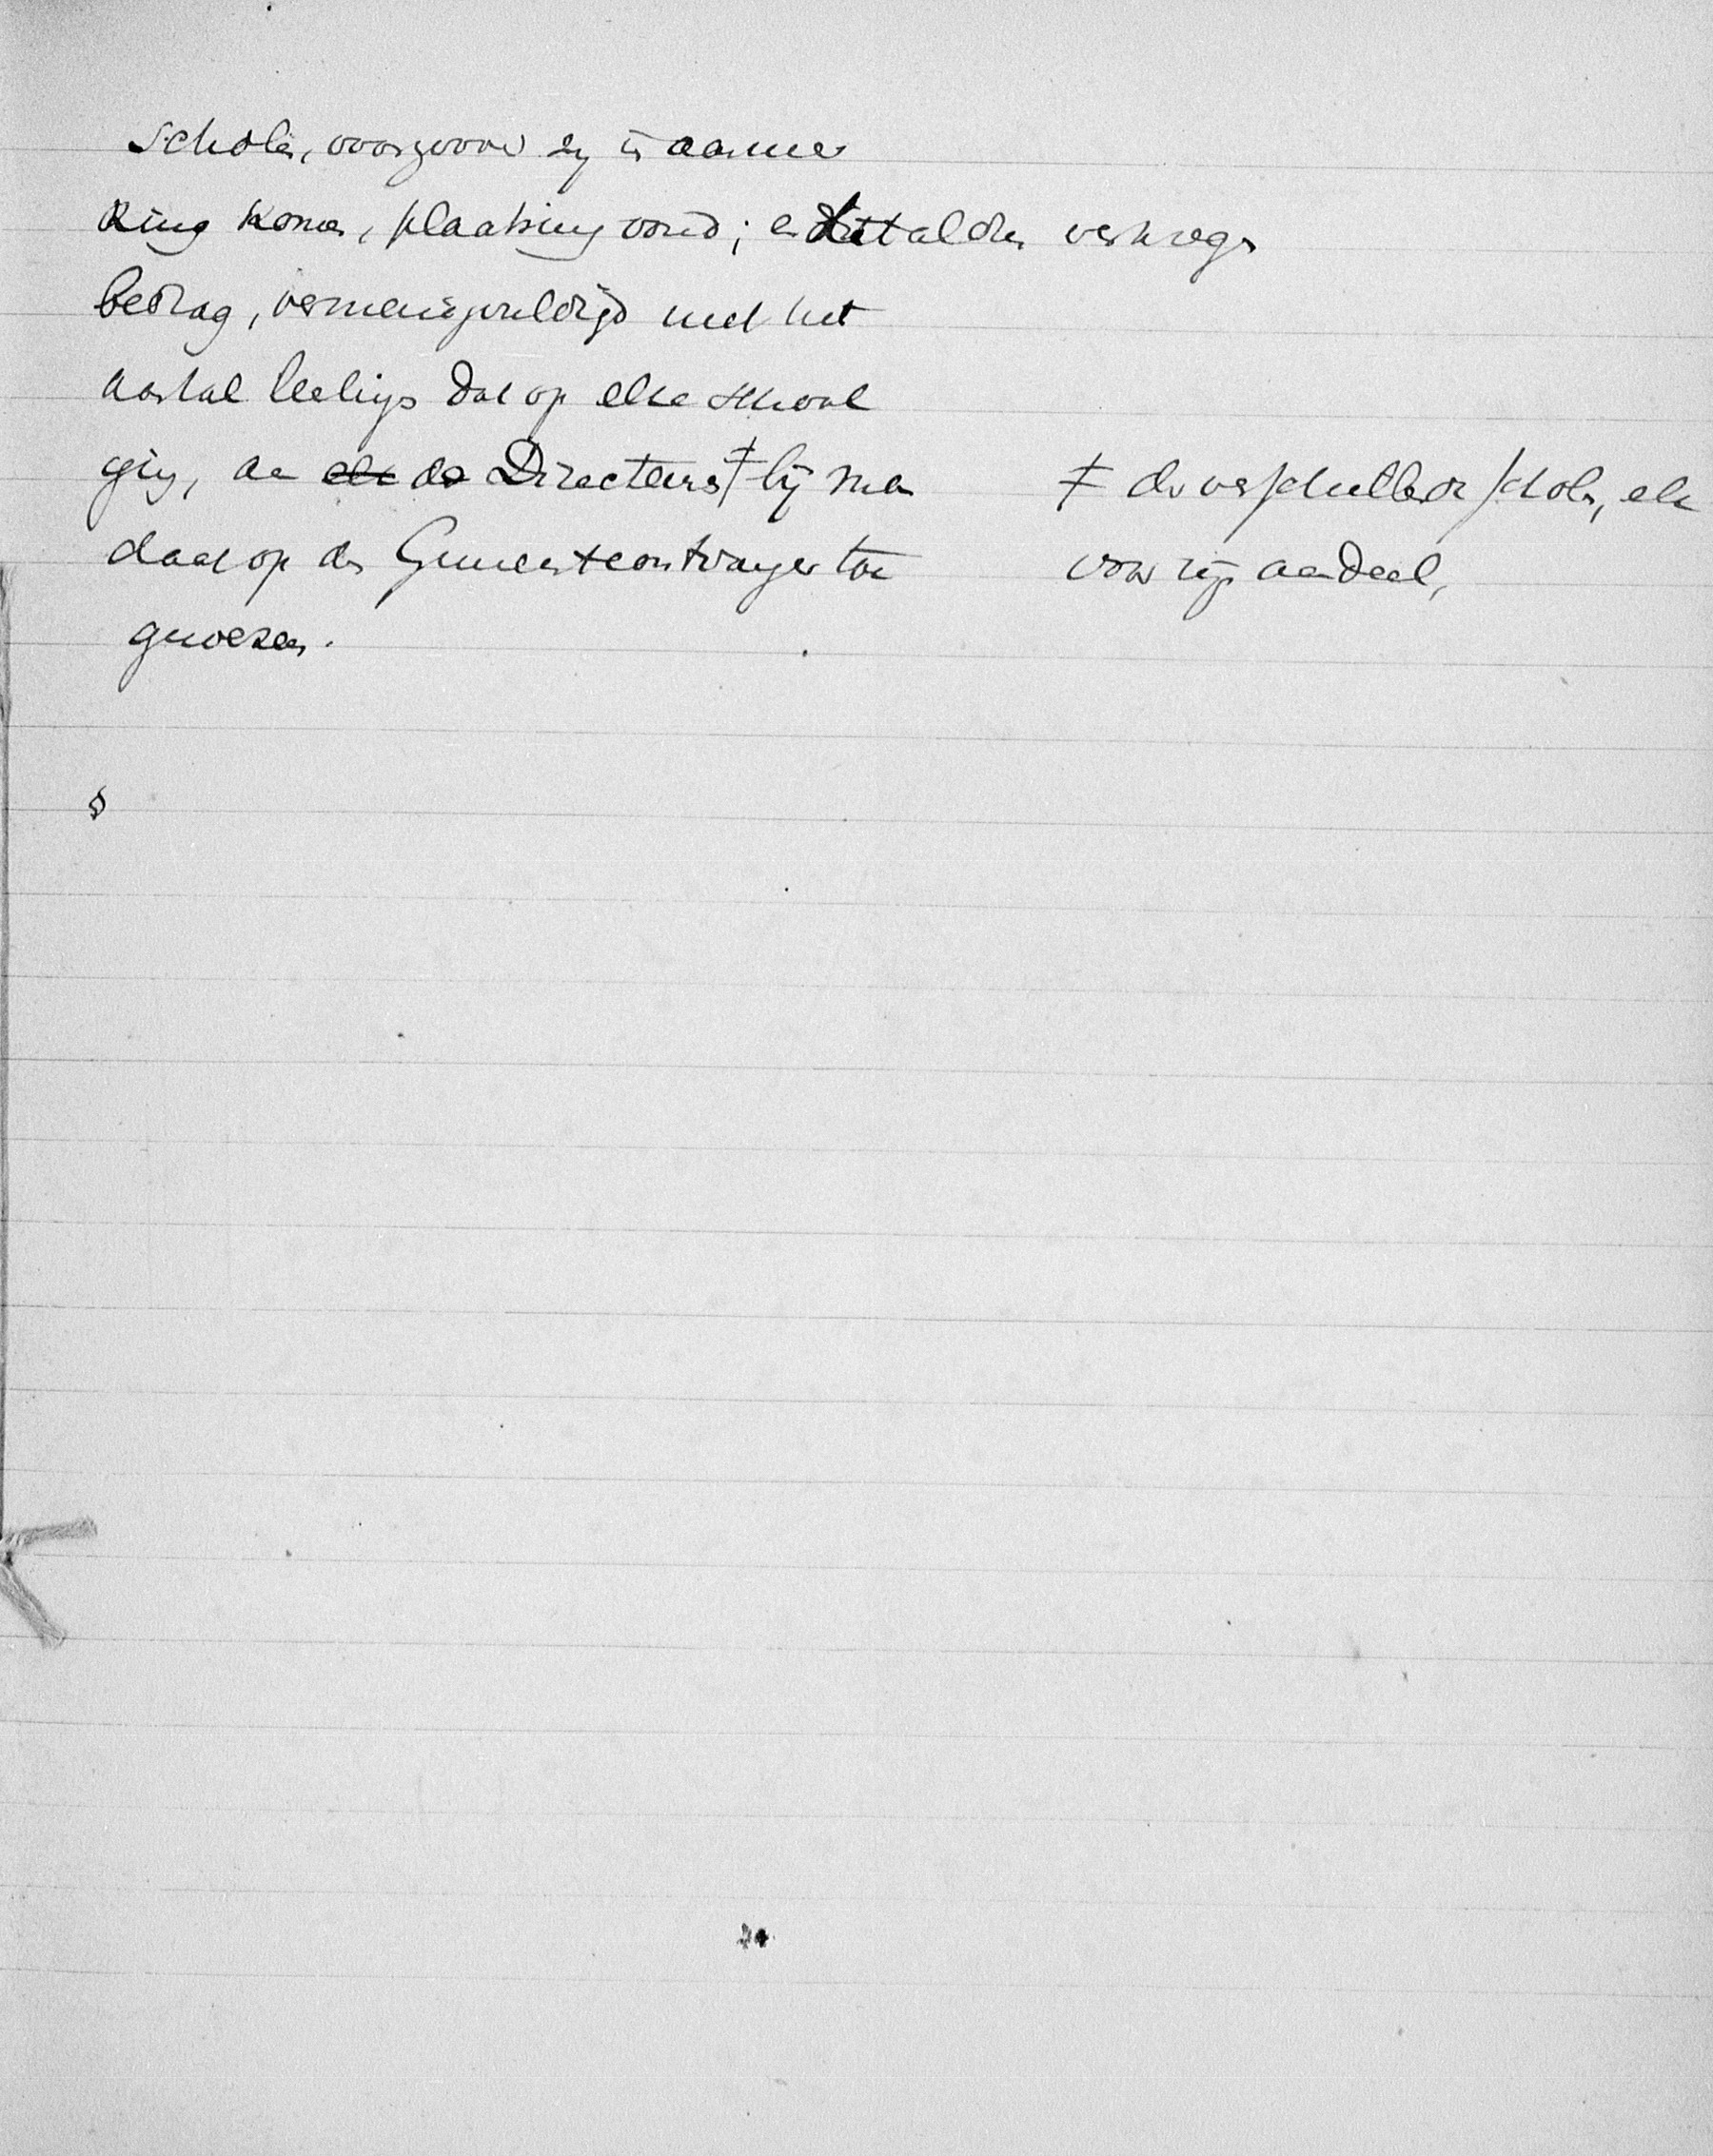 Scholen, voorzoover zij in aanmer
king komen, plaatsing vond; en dat aldus verkregen
bedrag, vermenigvuldigd met het
aantal leerlings dat op elke school
ging, aan elk de Directeurs ‡ bij man
daat op den Gemeenteontvanger toe
gewezen.
‡ der verschillende scholen, elk
voor zijn aandeel,
§